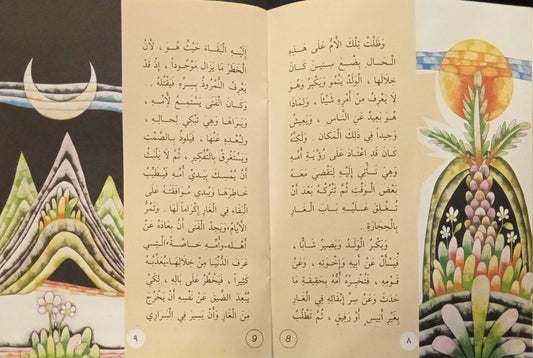 وَظَلَّتْ تِلْكَ الْأُمُّ عَلَى هَذِهِ
الْحَالِ بِضْعَ سِنِينَ كَانَ
خِلَالَهَا ، الْوَلَدُ يَنْمُو وَيَكْبُرُ وَهُوَ
لَا يَعْرِفُ مِنْ أَمْرِهِ شَيْئاً ، وَلِمَاذَا
هُوَ بَعِيدٌ عَنِ النَّاسِ ، وَيَعِيشُ
وَحِيداً فِي ذَلِكَ الْمَكَانِ . وَلَكِنَّهُ
كَانَ قَدِ اعْتَادَ عَلَى رُؤْيَةِ أُمِّهِ
وَهِيَ تَأْتِي إِلَيْهِ لِتَقْضِيَ مَعَهُ
بَعْضَ الْوَقْتِ ثُمَّ تَتْرُكَهُ بَعْدَ أَنْ
تُغْلِقَ عَلَيْهِ بَابَ الْغَارِ
بِالْحِجَارَةِ .
وَيَكْبُرُ الْوَلَدُ وَيَصِيرُ شَابًّا ،
فَيَسْأَلُ عَنْ أَبِيهِ وَإِخْوَتِهِ ، وَعَنْ
قَوْمِهِ ، فَتُخْبِرُهُ أُمُّهُ بِحَقِيقَةِ مَا
حَدَثَ وَعَنْ سِرِّ إِبْقَائِهِ فِي الْغَارِ
بِغَيْرِ أَنِيسٍ أَوْ رَفِيقٍ ، ثُمَّ تَطْلُبُ
٨
8
إِلَيْهِ الْبَقَاءَ حَيْثُ هُوَ ، لِأَنَّ
الْخَطَرَ مَا يَزَالُ مَوْجُوداً ، إِذْ قَدْ
يَعْرِفُ النَّمْرُوذُ بِسِرِّهِ فَيَقْتُلُهُ ..
وَكَانَ الْفَتَى يَسْتَمِعُ لِأُمِّهِ ،
وَيَرَاهَا وَهِيَ تَبْكِي لِحَالِهِ ,
وَلِبُعْدِهِ عَنْهَا ، فَيَلُوذُ بِالصَّمْتِ
وَيَسْتَغْرِقُ بِالتَّفْكِيرِ ، ثُمَّ لَا يَلْبَثُ
أَنْ يُمْسِكَ بِيَدَيْ أُمِّهِ فَيُطَيِّبُ
خَاطِرَهَا وَيُبْدِي مُوَافَقَتَهُ عَلَى
الْبَقَاءِ فِي الْغَارِ إِكْرَاماً لَهَا . وَتَمُرُّ
الْأَيَّامُ، وَيَجِدُ الْفَتَى أَنَّ بِعَادَهُ عَنْ
أَهْلِهِ - وَأُمِّهِ خَاصَّةً - الَّتِي
عَرَفَ الدُّنْيَا مِنْ خِلَالِهَا - يُعَذِّبُهُ
كَثِيراً ، فَيَخْطُرُ عَلَى بَالِهِ ، لِكَيْ
يُبْعِدَ الضِّيقَ عَنْ نَفْسِهِ أَنْ يَخْرُجَ
مِنَ الْغَارِ وَأَنْ يَسِيرَ فِي الْبَرَارِي
9
٩